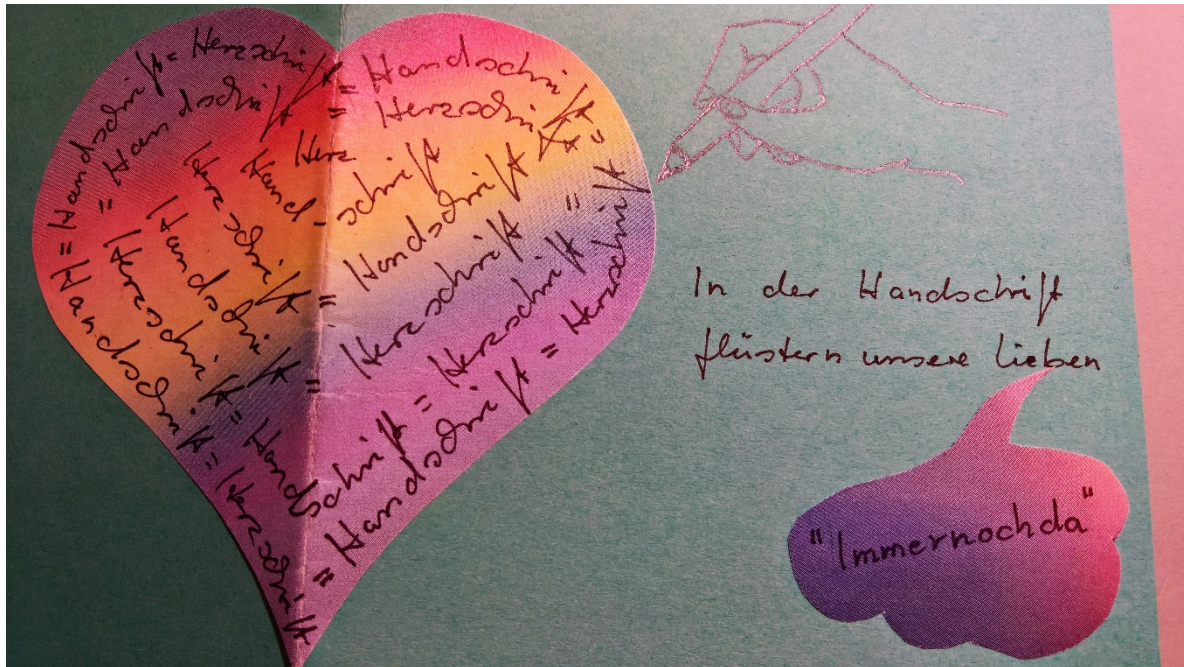 =Handschrift=Herzschrift = Handschrift
= Handschrift = Herzschrift =
Herz
Hand-schrift
Herzschrift = Handschrift
Handschrift = Herzschrift =
Herzschrift = Handschrift = Herzschrift
Handschrift = Herzschrift = Handschrift = Herzschrift
In der Handschrift
flüstern unsere Lieben
"Immernochda"